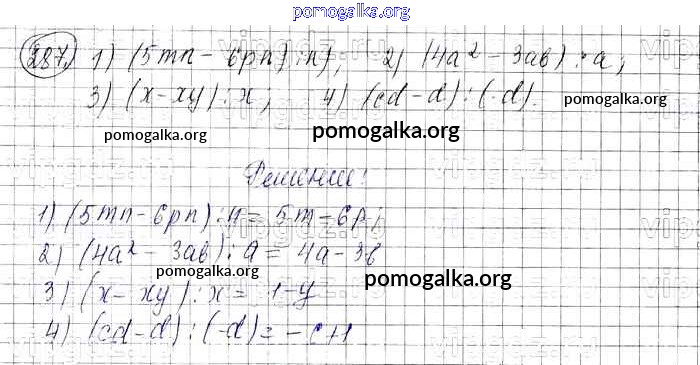 pomogalka.org
287) 1) (5mn - 6pn) : n; 2) (4a² - 3ab) : a;
3) (x - xy) : x; 4) (cd - d) : (-d).
pomogalka.org
pomogalka.org
pomogalka.org
Решение:
1) (5mn - 6pn) : n = 5m - 6p;
2) (4a² - 3ab) : a = 4a - 3b
pomogalka.org
pomogalka.org
3) (x - xy) : x = 1 - y
4) (cd - d) : (-d) = -c + 1